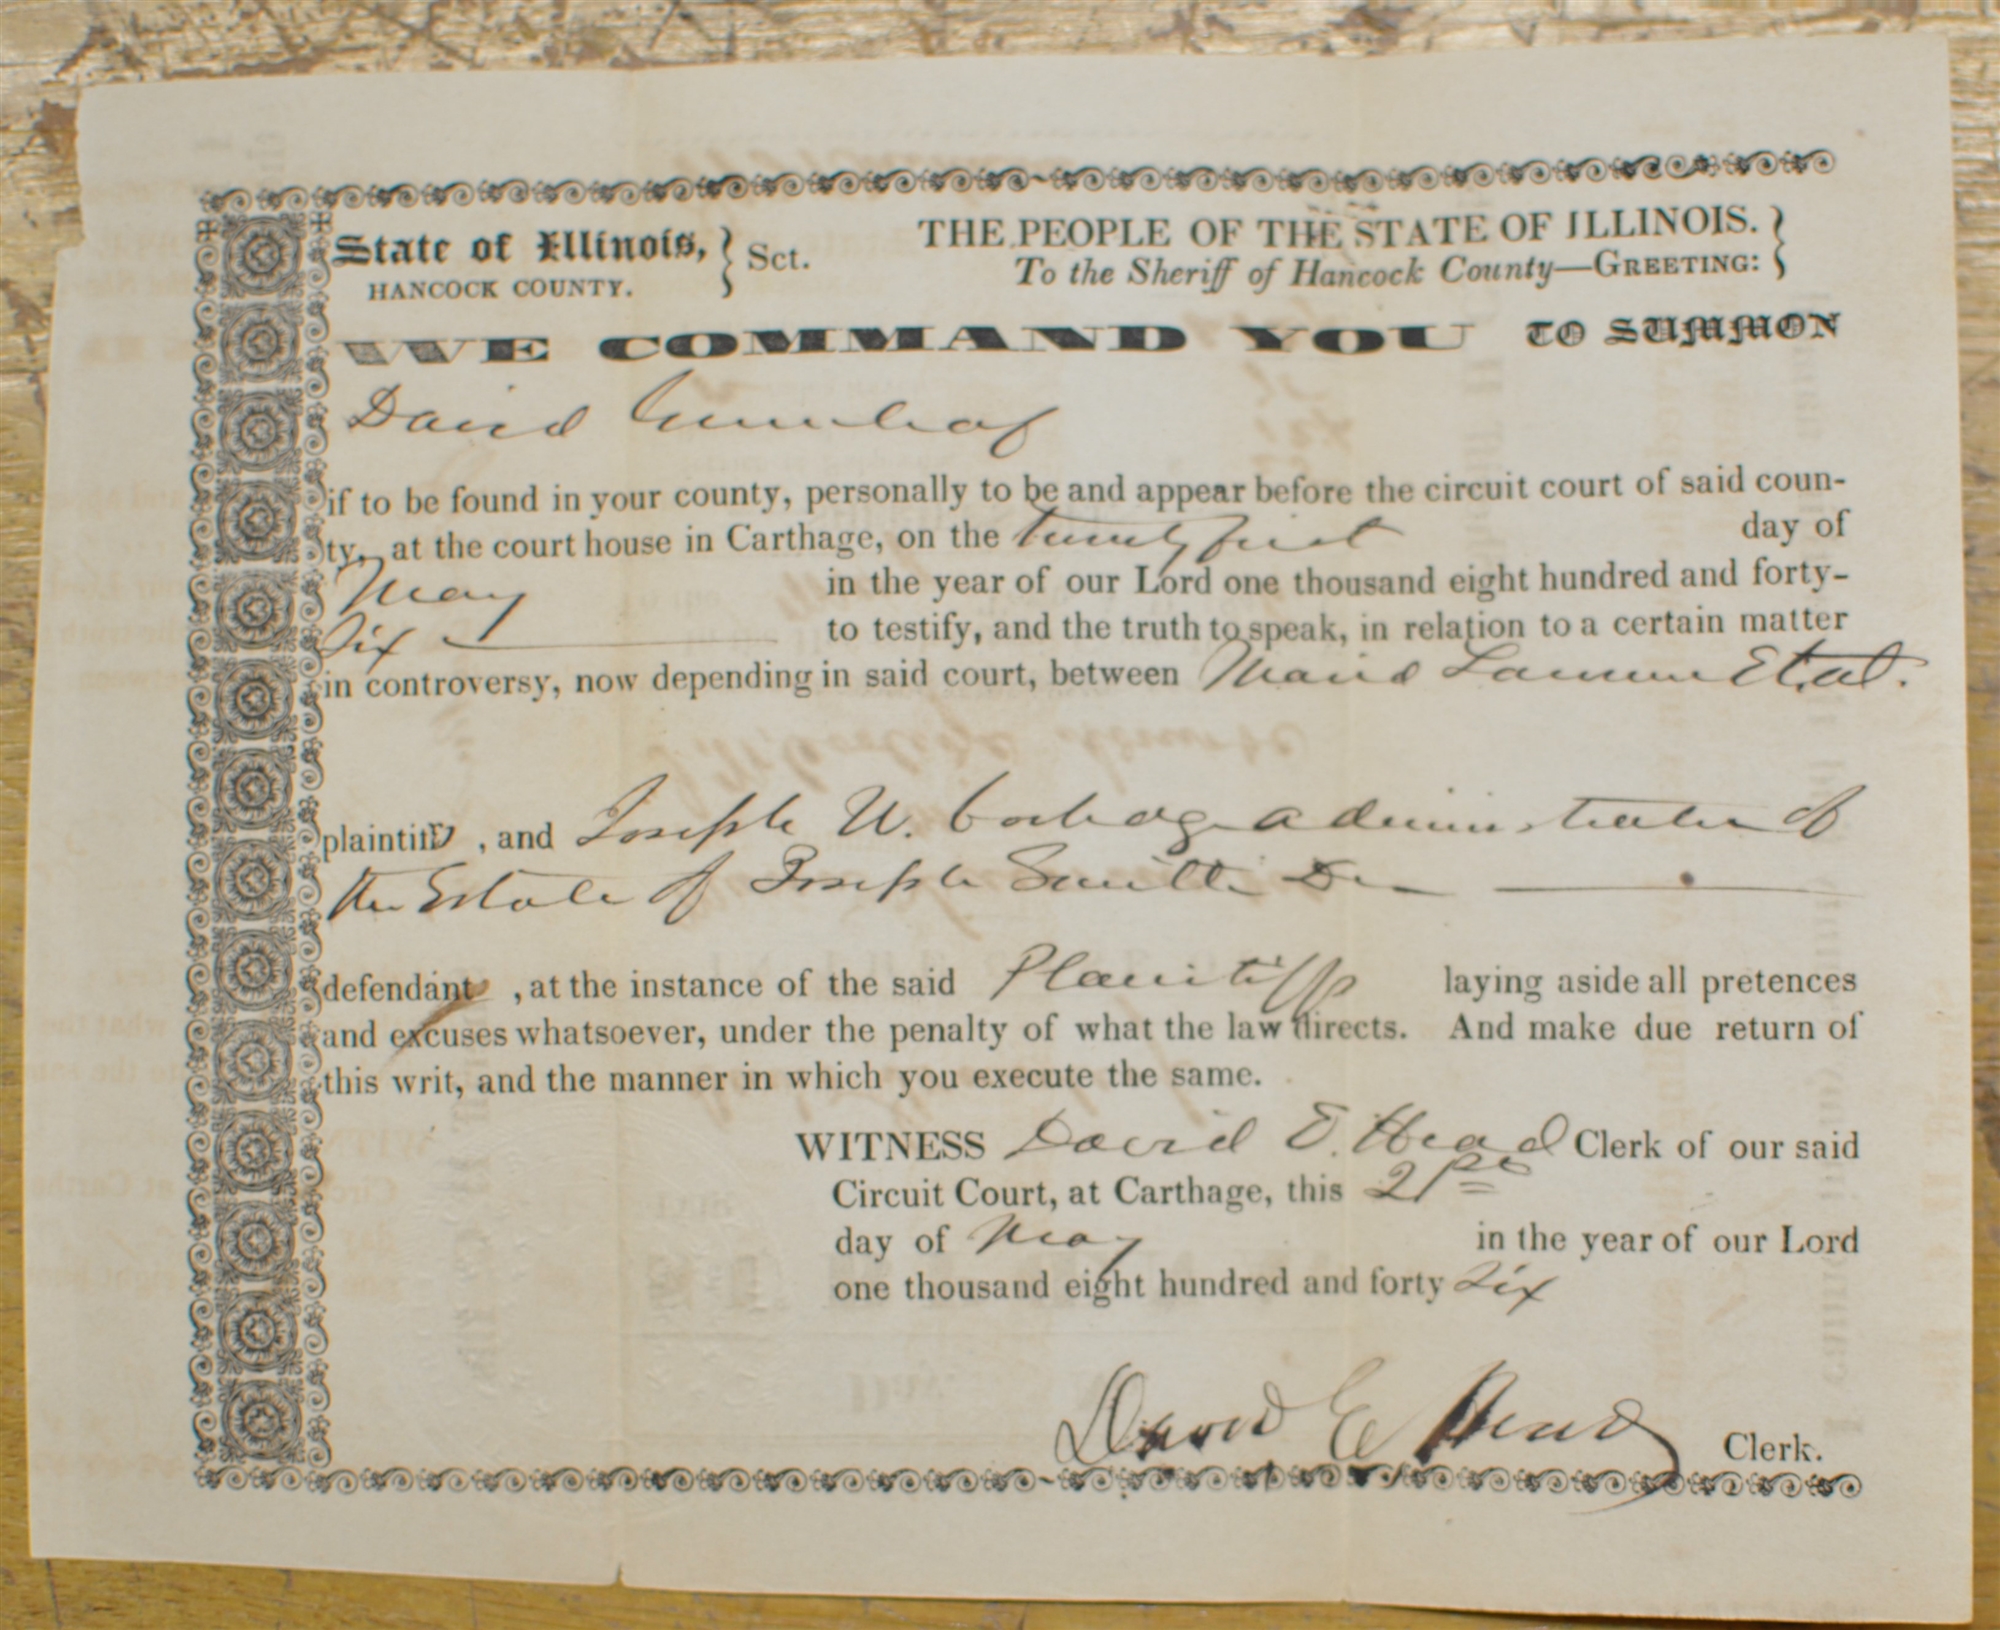 State of Illinois, } Sct.
HANCOCK COUNTY.
THE PEOPLE OF THE STATE OF ILLINOIS. }
To the Sheriff of Hancock County—GREETING:
WE COMMAND YOU TO SUMMON
David Greenleaf
if to be found in your county, personally to be and appear before the circuit court of said coun-
ty, at the court house in Carthage, on the twenty first day of
May in the year of our Lord one thousand eight hundred and forty-
Six to testify, and the truth to speak, in relation to a certain matter
in controversy, now depending in said court, between Et. al.
plaintiffs, and Joseph W. Coolidge administrator of
the Estate of Joseph Smith
defendant, at the instance of the said Plaintiffs laying aside all pretences
and excuses whatsoever, under the penalty of what the law directs. And make due return of
this writ, and the manner in which you execute the same.
WITNESS David E. Head Clerk of our said
Circuit Court, at Carthage, this 21st
day of May in the year of our Lord
one thousand eight hundred and forty Six
David E Head Clerk.